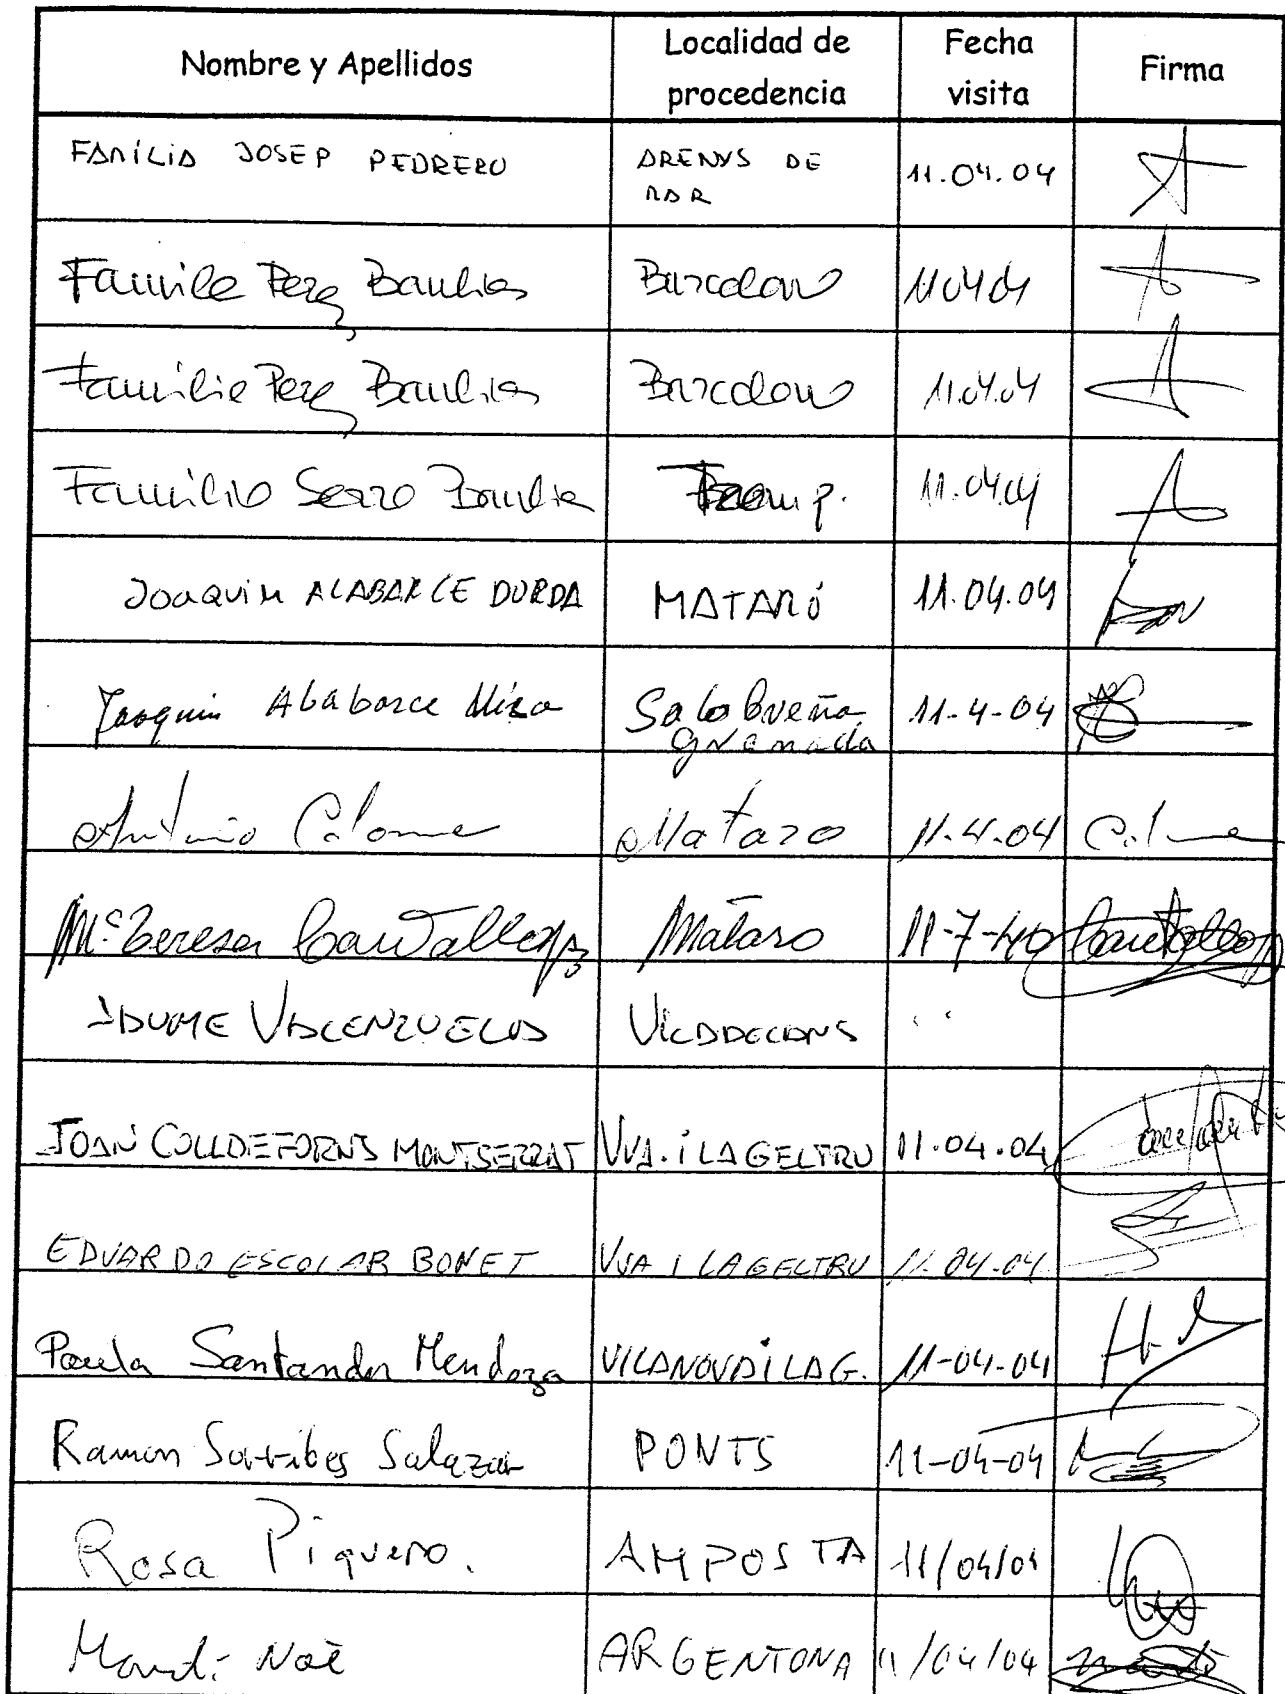 Nombre y Apellidos
Localidad de
procedencia
Fecha
visita
Firma
FAMÍLIA JOSEP PEDRERO
ARENYS DE
MAR
11.04.04
Familie Perez Baulies
Barcelona
11.04.04
Familie Perez Baulies
Barcelona
11.04.04
Familia Serro
11.04.04
JOAQUIM ALABARCE DURDA
MATARÓ
11.04.04
Joaquin Alabarce Mira
Salobreña
Granada
11-4-04
Antonio Colome
Mataro
11-4-04
Mª Teresa Cantallops
Mataro
11-7-40
Cantallops
JAUME VALENZUELA
VILADECANS
JOAN COLLDEFORNS MONTSERRAT
VNA. i LA GELTRU
11.04.04
EDUARDO ESCOLAR BONET
VNA i LA GELTRU
11-04-04
Paula Santander Mendoza
VILANOVA i LA G.
11-04-04
Ramon Sorribes Salazar
PONTS
11-04-04
Rosa Piquero.
AMPOSTA
11/04/04
Martí Noè
ARGENTONA
11/04/04